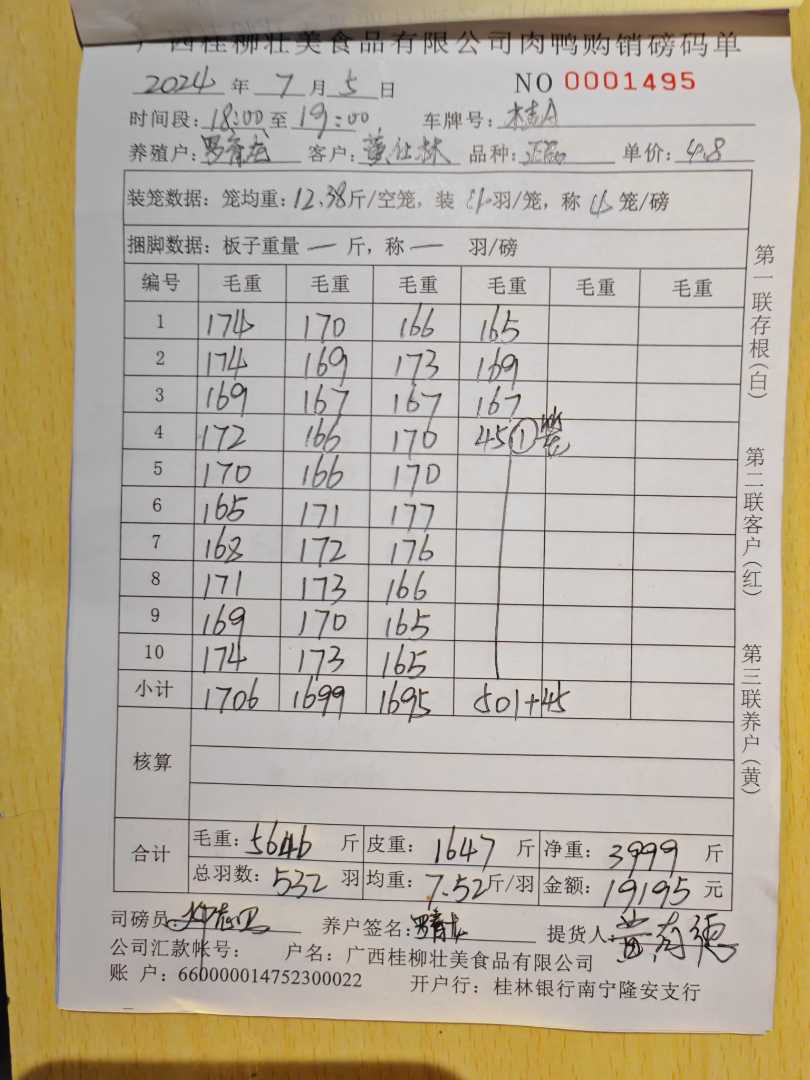 广西桂柳壮美食品有限公司肉鸭购销磅码单
2024 年 7 月 5 日 NO 0001495
时间段: 18:00 至 19:00 车牌号: 桂A
养殖户: 罗青 客户: 黄仕林 品种: 单价: 4.8
装笼数据: 笼均重: 12.38 斤/空笼, 装 羽/笼, 称 4 笼/磅
捆脚数据: 板子重量 一 斤, 称 一 羽/磅
编号 毛重 毛重 毛重 毛重 毛重 毛重
1 174 170 166 165
2 174 169 173 169
3 169 167 167 167
4 172 166 170 45 ① 笼
5 170 166 170
6 165 171 177
7 168 172 176
8 171 173 166
9 169 170 165
10 174 173 165
小计 1706 1699 1695 501+45
核算
合计
毛重: 5646 斤 皮重: 1647 斤 净重: 3999 斤
总羽数: 532 羽 均重: 7.52 斤/羽 金额: 19195 元
司磅员 养户签名: 罗青 提货人 黄
公司汇款帐号: 户名: 广西桂柳壮美食品有限公司
账 户: 660000014752300022 开户行: 桂林银行南宁隆安支行
第一联存根(白)
第二联客户(红)
第三联养户(黄)